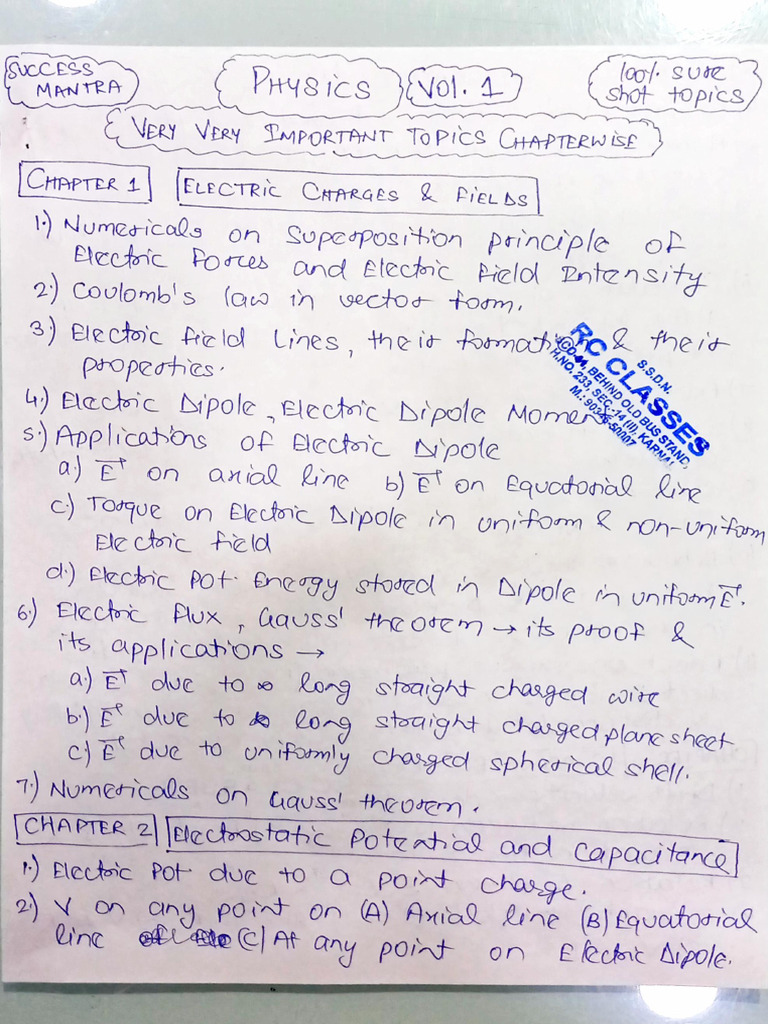 SUCCESS MANTRA
PHYSICS
VOL. 1
100% sure shot topics
VERY VERY IMPORTANT TOPICS CHAPTERWISE
CHAPTER 1 ELECTRIC CHARGES & FIELDS
1.) Numericals on Superposition principle of
Electric Forces and Electric Field Intensity
2.) Coulomb's law in vector form.
3.) Electric field lines, their formation & their
properties.
4.) Electric Dipole, Electric Dipole Moment
5.) Applications of Electric Dipole
a.) E→ on axial line b.) E→ on Equatorial line
c.) Torque on Electric Dipole in uniform & non-uniform
Electric field
d.) Electric Pot. Energy stored in Dipole in uniform E→.
6.) Electric flux, Gauss' theorem → its proof &
its applications →
a.) E→ due to ∞ long straight charged wire
b.) E→ due to long straight charged plane sheet
c.) E→ due to uniformly charged spherical shell.
7.) Numericals on Gauss' theorem.
CHAPTER 2 Electrostatic Potential and Capacitance
1.) Electric Pot due to a point charge.
2.) V on any point on (A) Axial line (B) Equatorial
line (C) At any point on Electric Dipole.
S.S.D.N.
RC CLASSES
BEHIND OLD BUS STAND,
H.NO. 233, SEC.-14 (II), KARNAL